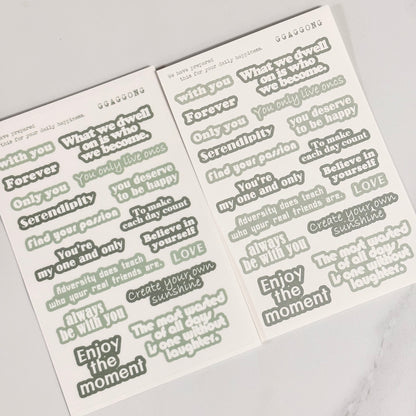 We have prepared
this for your daily happiness.
GGAGGONG
with you
What we dwell
on is who
we become.
Forever
Only you
You only live ones
Serendipity
you deserve
to be happy
find your passion
To make
each day count
You're
my one and only
Believe in
yourself
Adversity does teach
who your real friends are.
LOVE
always
be with you
Create your own
sunshine
Enjoy
the
moment
The most wasted
of all days
is one without
laughter.
We have prepared
this for your daily happiness.
GGAGGONG
with you
What we dwell
on is who
we become.
Forever
Only you
You only live ones
Serendipity
you deserve
to be happy
find your passion
To make
each day count
You're
my one and only
Believe in
yourself
Adversity does teach
who your real friends are.
LOVE
always
be with you
Create your own
sunshine
Enjoy
the
moment
The most wasted
of all days
is one without
laughter.